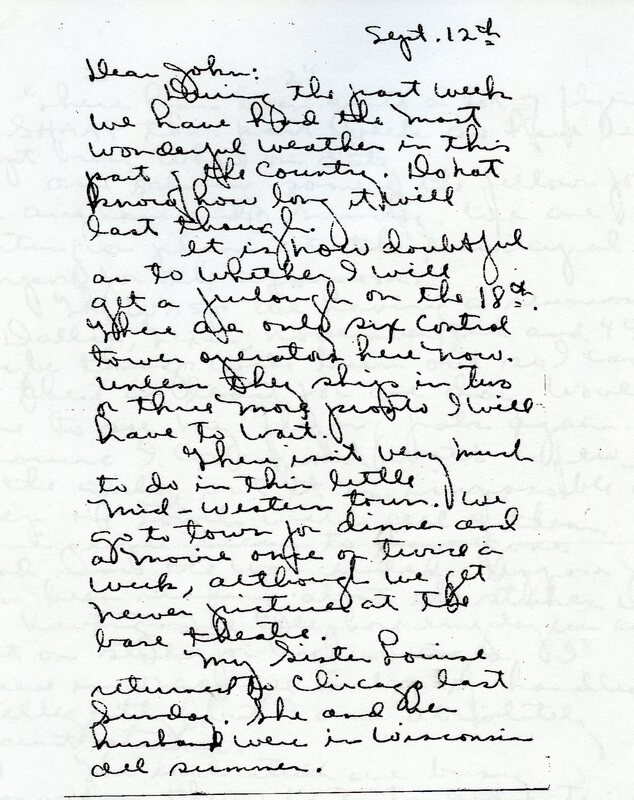 Sept. 12th
Dear John:
During the past week
we have had the most
wonderful weather in this
part of the country. Do not
know how long it will
last though.
It is now doubtful
as to whether I will
get a furlough on the 18th.
There are only six control
tower operators here now.
Unless they ship in two
or three more pronto I will
have to wait.
There isn't very much
to do in this little
mid-western town. We
go to town for dinner and
a movie once or twice a
week, although we get
newer pictures at the
base theatre.
My sister Louise
returned to Chicago last
Sunday. She and her
husband were in Wisconsin
all summer.